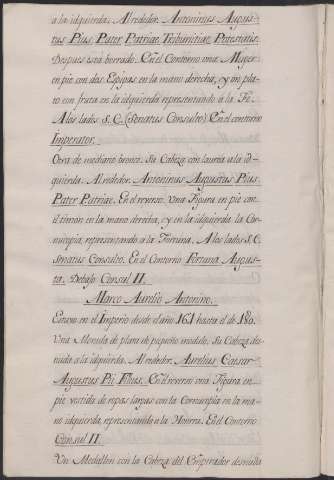 a la idquierda. Alrededor. Antoninus Augus-
tus Pius Pater Patriae Tribunitiae Potestatis.
Despues está borrado. En el Contorno una Muger
en pie con dos Espigas en la mano derecha, y un pla-
to con fruta en la idquierda representando a la Fe.
A los lados S. C. (Senatus Consulto) En el contorno
Imperator.
Otra de mediano bronce. Su Cabeza con lauria a la id-
quierda. Alrededor. Antoninus Augustus Pius
Pater Patriae. En el reverso. Una Figura en pie con
el timon en la mano derecha, y en la idquierda la Cor-
nucopia, representando a la Fortuna. A los lados S. C.
Senatus Consulto. En el Contorno Fortuna Augus-
ta. Debajo Consul II.
Marco Aurelio Antonino.
Estuvo en el Imperio desde el año 161 hasta el de 180.
Una Moneda de plata de pequeño modulo. Su Cabeza des-
nuda a la idquierda. Alrededor. Aurelius Caesar
Augustus Pii Filius. En el reverso una Figura en
pie vestida de ropas largas con la Cornucopia en la ma-
no idquierda, representando a la Honrra. En el Contorno
Consul II.
Un Medallon con la Cabeza del Emperador desnuda